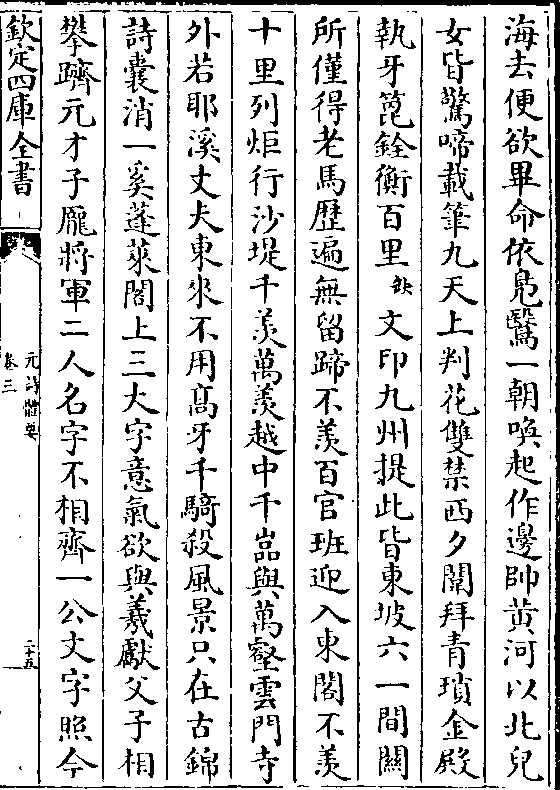 海去便欲畢命依鳬鷖一朝喚起作邊帥黄河以北兒
女皆驚啼載筆九天上判花雙禁西夕闈拜青瑣金殿
執牙箆銓衡百里缺文印九州提此皆東坡六一間闗
所僅得老馬歴遍無留蹄不羡百官班迎入東閣不羡
十里列炬行沙堤千羡萬羡越中千嵓與萬壑雲門寺
外若耶溪丈夫東來不用髙牙千騎殺風景只在古錦
詩囊消一奚蓬萊閣上三大字意氣欲與羲獻父子相
攀躋元才子龎將軍二人名字不相齊一公文字照今
欽定四庫全書
元詩體要
卷三
二十五